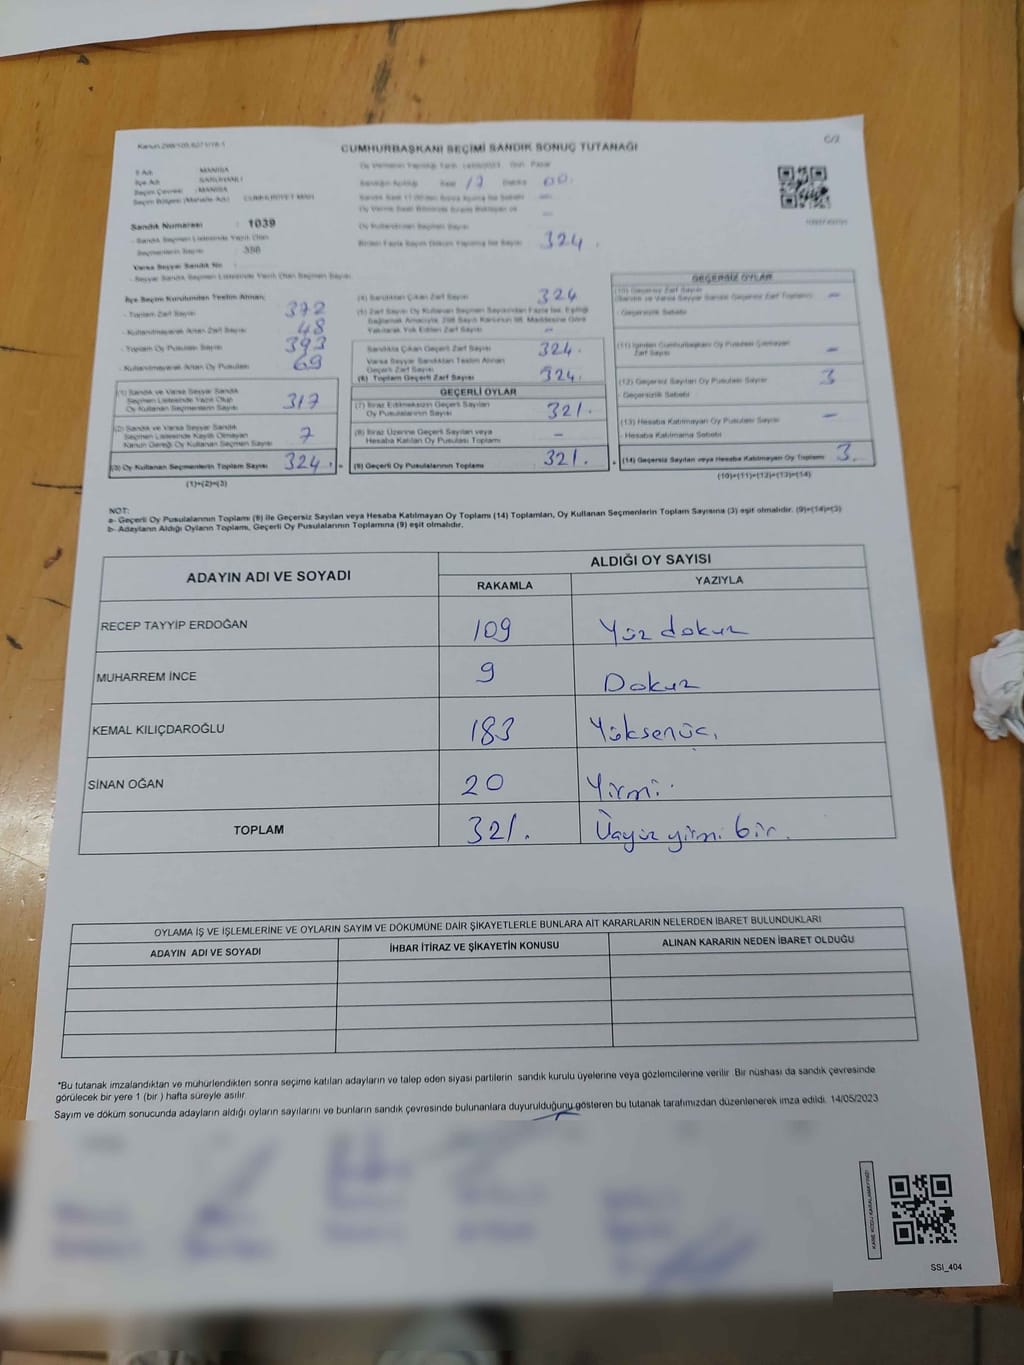 Kanun:298/105,6271/18-1
CUMHURBAŞKANI SEÇİMİ SANDIK SONUÇ TUTANAĞI
C/2
İl Adı MANİSA
İlçe Adı SARUHANLI
Seçim Çevresi :MANİSA
Seçim Bölgesi (Mahalle Adı) CUMHURİYET MAH
Sandık Numarası : 1039
- Sandık Seçmen Listesinde Yazılı Olan
Seçmenlerin Sayısı : 356
Varsa Seyyar Sandık No
- Seyyar Sandık Seçmen Listesinde Yazılı Olan Seçmen Sayısı
Oy Vermenin Yapıldığı Tarih 14/05/2023, Gün Pazar
Sandığın Açıldığı Saat 17 Dakika 00.
Birden Fazla Sayım Döküm Yapılmış İse Sayısı 324.
İlçe Seçim Kurulundan Teslim Alınan;
- Toplam Zarf Sayısı 372
- Kullanılmayarak Artan Zarf Sayısı 48
- Toplam Oy Pusulası Sayısı 393
- Kullanılmayarak Artan Oy Pusulası 69
(1) Sandık ve Varsa Seyyar Sandık
Seçmen Listesinde Yazılı Olup
Oy Kullanan Seçmenlerin Sayısı 317
(2) Sandık ve Varsa Seyyar Sandık
Seçmen Listesinde Kayıtlı Olmayan
Kanun Gereği Oy Kullanan Seçmen Sayısı 7
(3) Oy Kullanan Seçmenlerin Toplam Sayısı 324.
(1)+(2)=(3)
(4) Sandıktan Çıkan Zarf Sayısı 324
(5) Zarf Sayısı Oy Kullanan Seçmen Sayısından Fazla İse, Eşitliği
Sağlamak Amacıyla, 298 Sayılı Kanunun 98. Maddesine Göre
Yakılarak Yok Edilen Zarf Sayısı –
Sandıkta Çıkan Geçerli Zarf Sayısı 324.
Varsa Seyyar Sandıktan Teslim Alınan
Geçerli Zarf Sayısı
(6) Toplam Geçerli Zarf Sayısı 324.
GEÇERLİ OYLAR
(7) İtiraz Edilmeksizin Geçerli Sayılan
Oy Pusulalarının Sayısı 321.
(8) İtiraz Üzerine Geçerli Sayılan veya
Hesaba Katılan Oy Pusulası Toplamı –
(9) Geçerli Oy Pusulalarının Toplamı 321.
GEÇERSİZ OYLAR
(10) Geçersiz Zarf Sayısı
(Sandık ve Varsa Seyyar Sandık Geçersiz Zarf Toplamı) –
- Geçersizlik Sebebi
(11) İçinden Cumhurbaşkanı Oy Pusulası Çıkmayan
Zarf Sayısı –
(12) Geçersiz Sayılan Oy Pusulası Sayısı 3
- Geçersizlik Sebebi
(13) Hesaba Katılmayan Oy Pusulası Sayısı –
- Hesaba Katılmama Sebebi
(14) Geçersiz Sayılan veya Hesaba Katılmayan Oy Toplamı 3.
(10)+(11)+(12)+(13)=(14)
NOT:
a- Geçerli Oy Pusulalarının Toplamı (9) ile Geçersiz Sayılan veya Hesaba Katılmayan Oy Toplamı (14) Toplamları, Oy Kullanan Seçmenlerin Toplam Sayısına (3) eşit olmalıdır. (9)+(14)=(3)
b- Adayların Aldığı Oyların Toplamı, Geçerli Oy Pusulalarının Toplamına (9) eşit olmalıdır.
ADAYIN ADI VE SOYADI ALDIĞI OY SAYISI
RAKAMLA YAZIYLA
RECEP TAYYİP ERDOĞAN 109 Yüz dokuz
MUHARREM İNCE 9 Dokuz
KEMAL KILIÇDAROĞLU 183 Yüksenüç.
SİNAN OĞAN 20 Yirmi.
TOPLAM 321. Üçyüz yirmi bir.
OYLAMA İŞ VE İŞLEMLERİNE VE OYLARIN SAYIM VE DÖKÜMÜNE DAİR ŞİKAYETLERLE BUNLARA AİT KARARLARIN NELERDEN İBARET BULUNDUKLARI
ADAYIN ADI VE SOYADI İHBAR İTİRAZ VE ŞİKAYETİN KONUSU ALINAN KARARIN NEDEN İBARET OLDUĞU
*Bu tutanak imzalandıktan ve mühürlendikten sonra seçime katılan adayların ve talep eden siyasi partilerin sandık kurulu üyelerine veya gözlemcilerine verilir .Bir nüshası da sandık çevresinde
görülecek bir yere 1 (bir ) hafta süreyle asılır.
Sayım ve döküm sonucunda adayların aldığı oyların sayılarını ve bunların sandık çevresinde bulunanlara duyurulduğunu gösteren bu tutanak tarafımızdan düzenlenerek imza edildi. 14/05/2023
SSI_404